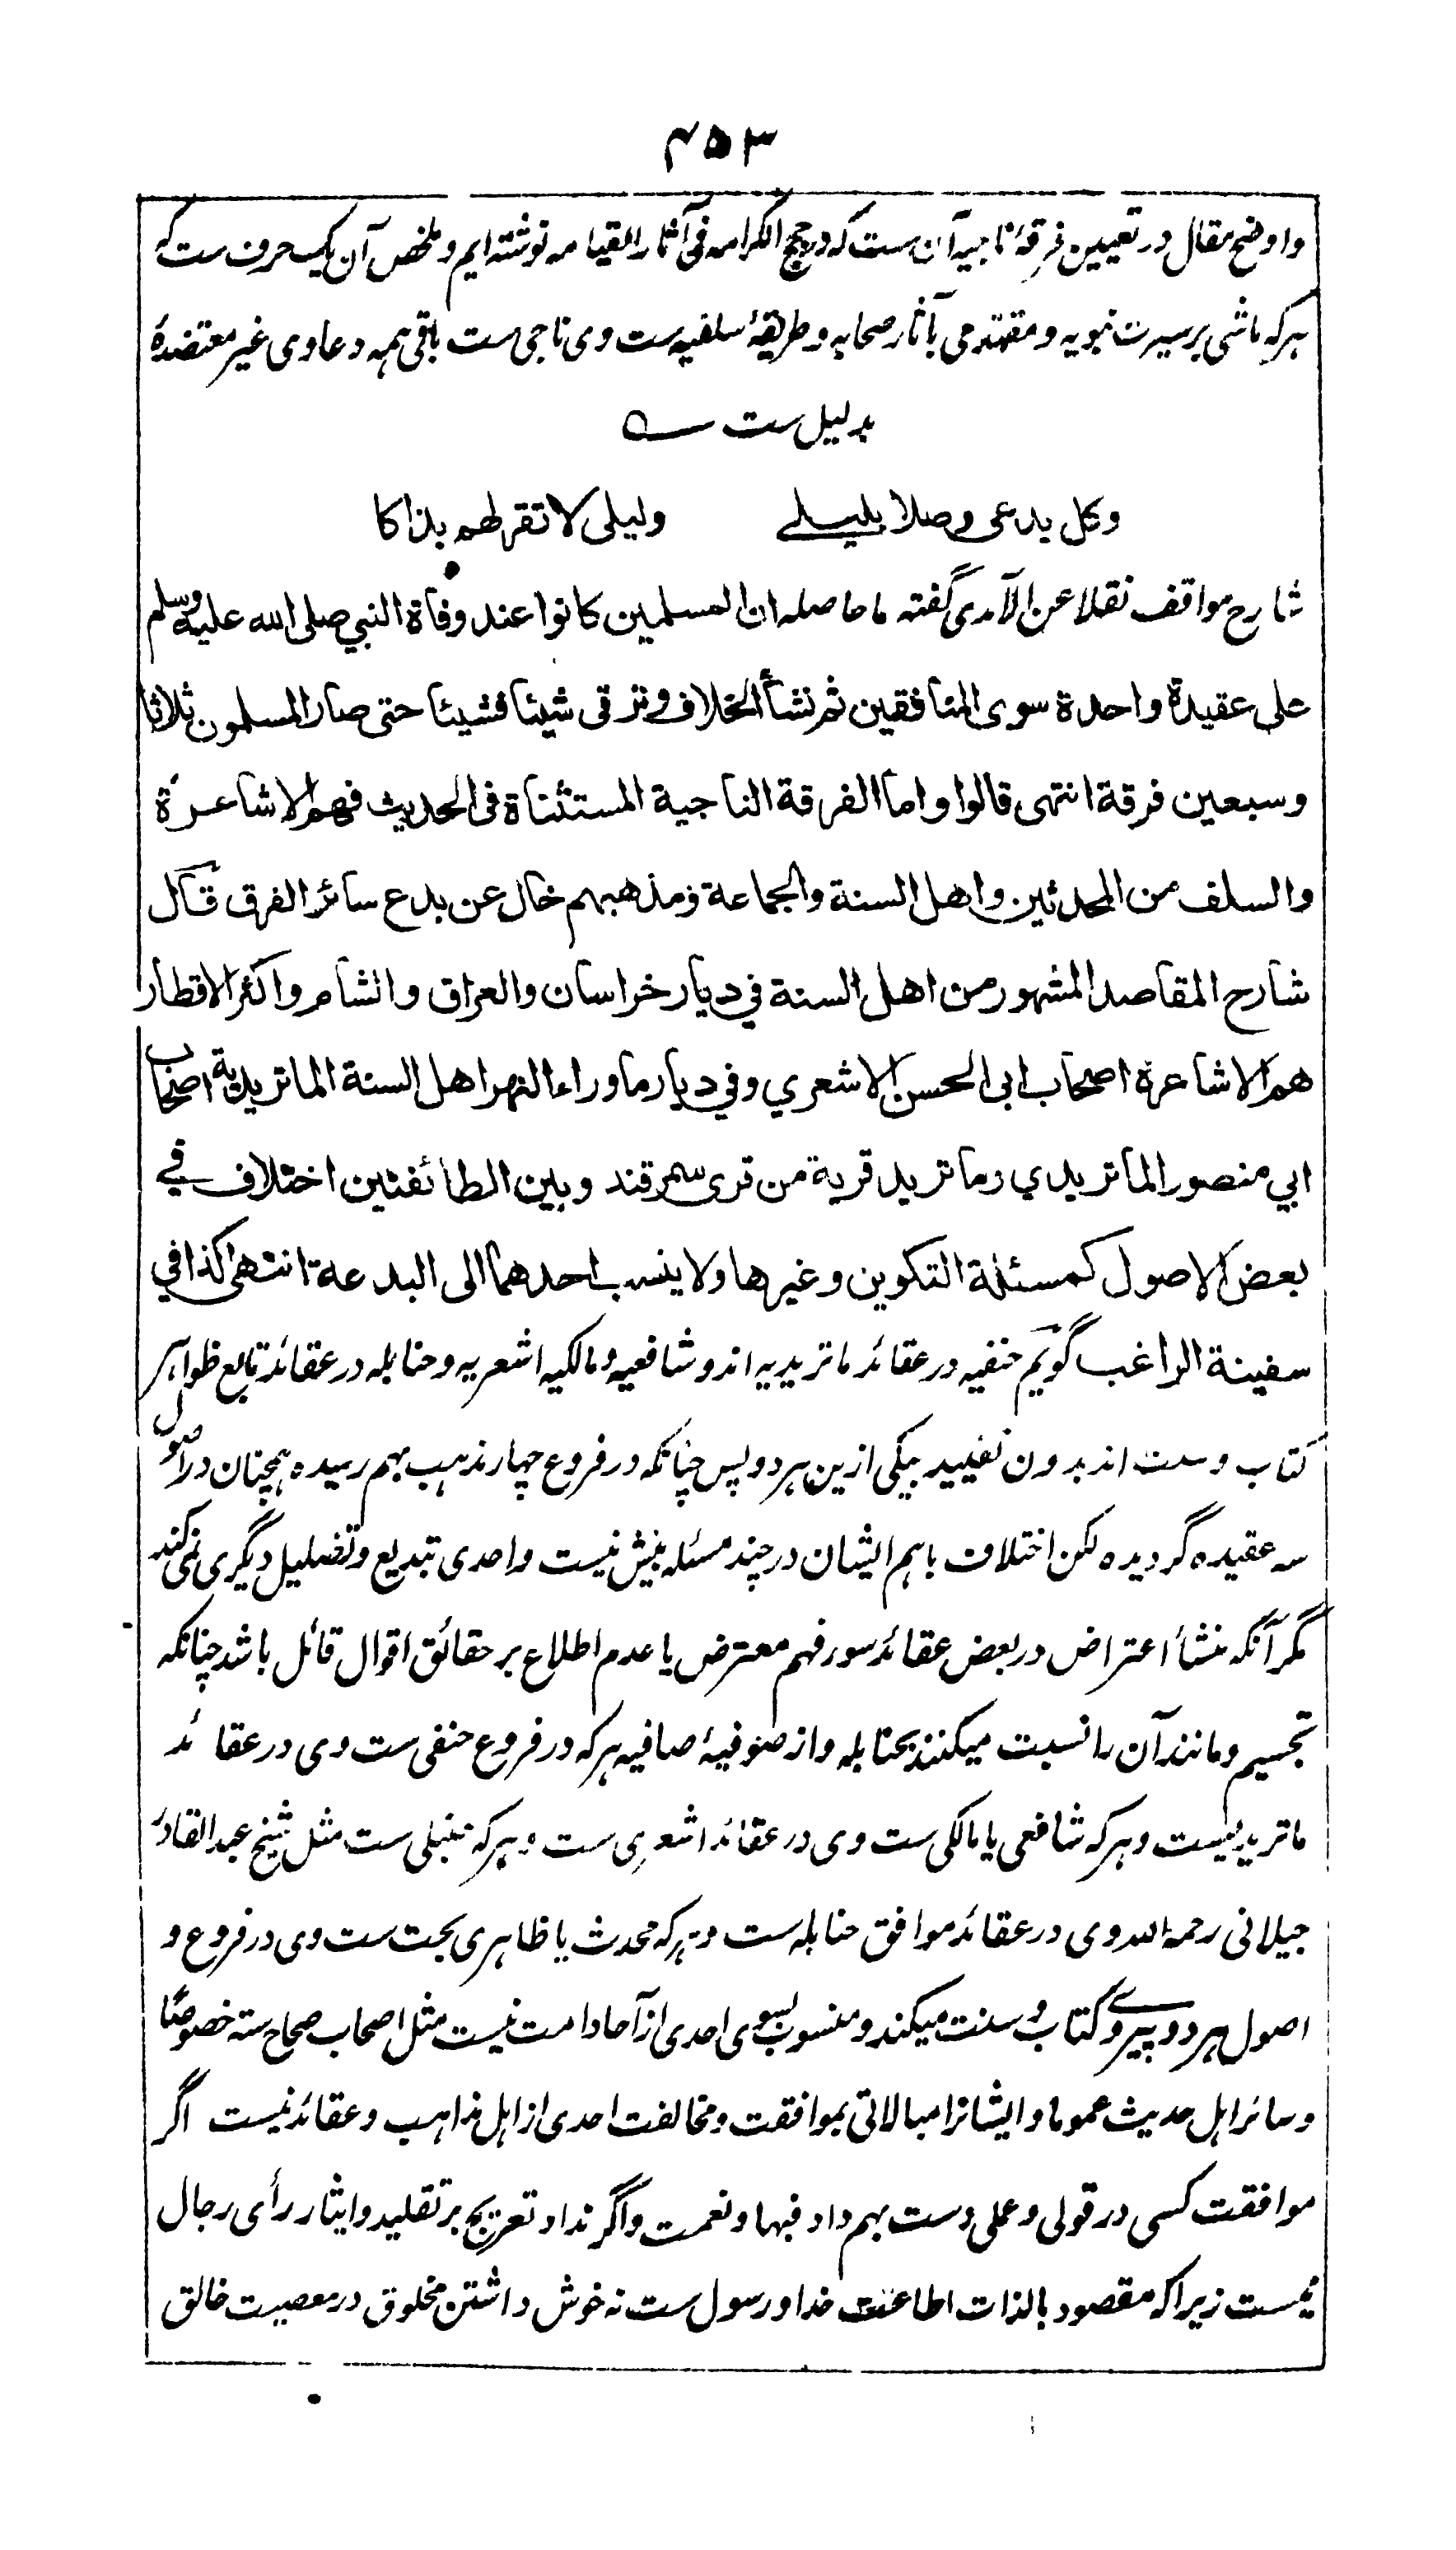 ۴۵۳
واوضح مقال در تعیین فرقهٔ ناجیه آن ست که در حجج الکرامه فی آثار القیامه نوشته ایم و ملخص آن یک حرف ست که
هر که ماشی بر سیرت نبویه و مقتدی بآثار صحابه و طریقهٔ سلفیه ست وی ناجی ست باقی همه دعاوی غیر معتضدهٔ
بدلیل ست ؎
وکل یدعی وصلا بلیلے ولیلی لا تقر لهم بذاکا
شارح مواقف نقلا عن الآمدی گفته ما حاصله ان المسلمین کانوا عند وفاة النبی صلی الله علیه وسلم
علی عقیدة واحدة سوی المنافقین ثم نشأ الخلاف وترقی شیئا فشیئا حتی صار المسلمون ثلاثا
وسبعین فرقة انتهی قالوا واما الفرقة الناجیة المستثناة فی الحدیث فهم الاشاعرة
والسلف من المحدثین واهل السنة والجماعة ومذهبهم خال عن بدع سائر الفرق قال
شارح المقاصد المشهور من اهل السنة في دیار خراسان والعراق والشام واکثر الاقطار
هم الاشاعرة اصحاب ابی الحسن الاشعري وفي دیار ما وراء النهر اهل السنة الماتریدیة اصحاب
ابي منصور الماتریدي وماترید قریة من قری سمرقند وبین الطائفتین اختلاف في
بعض الاصول کمسئلة التکوین وغیرها ولا ینسب احدهما الی البدعة انتهی کذا في
سفینة الراغب گویم حنفیه در عقائد ماتریدیه اند و شافعیه و مالکیه اشعریه و حنابله در عقائد تابع ظواهر
کتاب و سنت اند بدون تقیید بیکی ازین هر دو پس چنانکه در فروع چهار مذهب بهم رسیده همچنان در اصول
سه عقیده گردیده لکن اختلاف باهم ایشان در چند مسئله بیش نیست و احدی تبدیع و تضلیل دیگری نمی کند
مگر آنکه منشأ اعتراض در بعض عقائد سوء فهم معترض یا عدم اطلاع بر حقائق اقوال قائل باشد چنانکه
تجسیم و مانند آن را نسبت میکنند بحنابله و از صوفیهٔ صافیه هر که در فروع حنفی ست وی در عقائد
ماتریدیست و هر که شافعی یا مالکی ست وی در عقائد اشعری ست و هر که حنبلی ست مثل شیخ عبدالقادر
جیلانی رحمه الله وی در عقائد موافق حنابله ست و هر که محدث یا ظاهری بحت ست وی در فروع و
اصول هر دو پیروے کتاب و سنت میکند و منسوب بسوی احدی از آحاد امت نیست مثل اصحاب صحاح سته خصوصًا
و سائر اهل حدیث عموما و ایشانرا مبالاتی بموافقت و مخالفت احدی از اهل مذاهب و عقائد نیست اگر
موافقت کسی در قولی و عملی دست بهم داد فبها و نعمت و اگر نداد تعریج بر تقلید و ایثار رأی رجال
نیست زیرا که مقصود بالذات اطاعت خدا و رسول ست نه خوش داشتن مخلوق در معصیت خالق